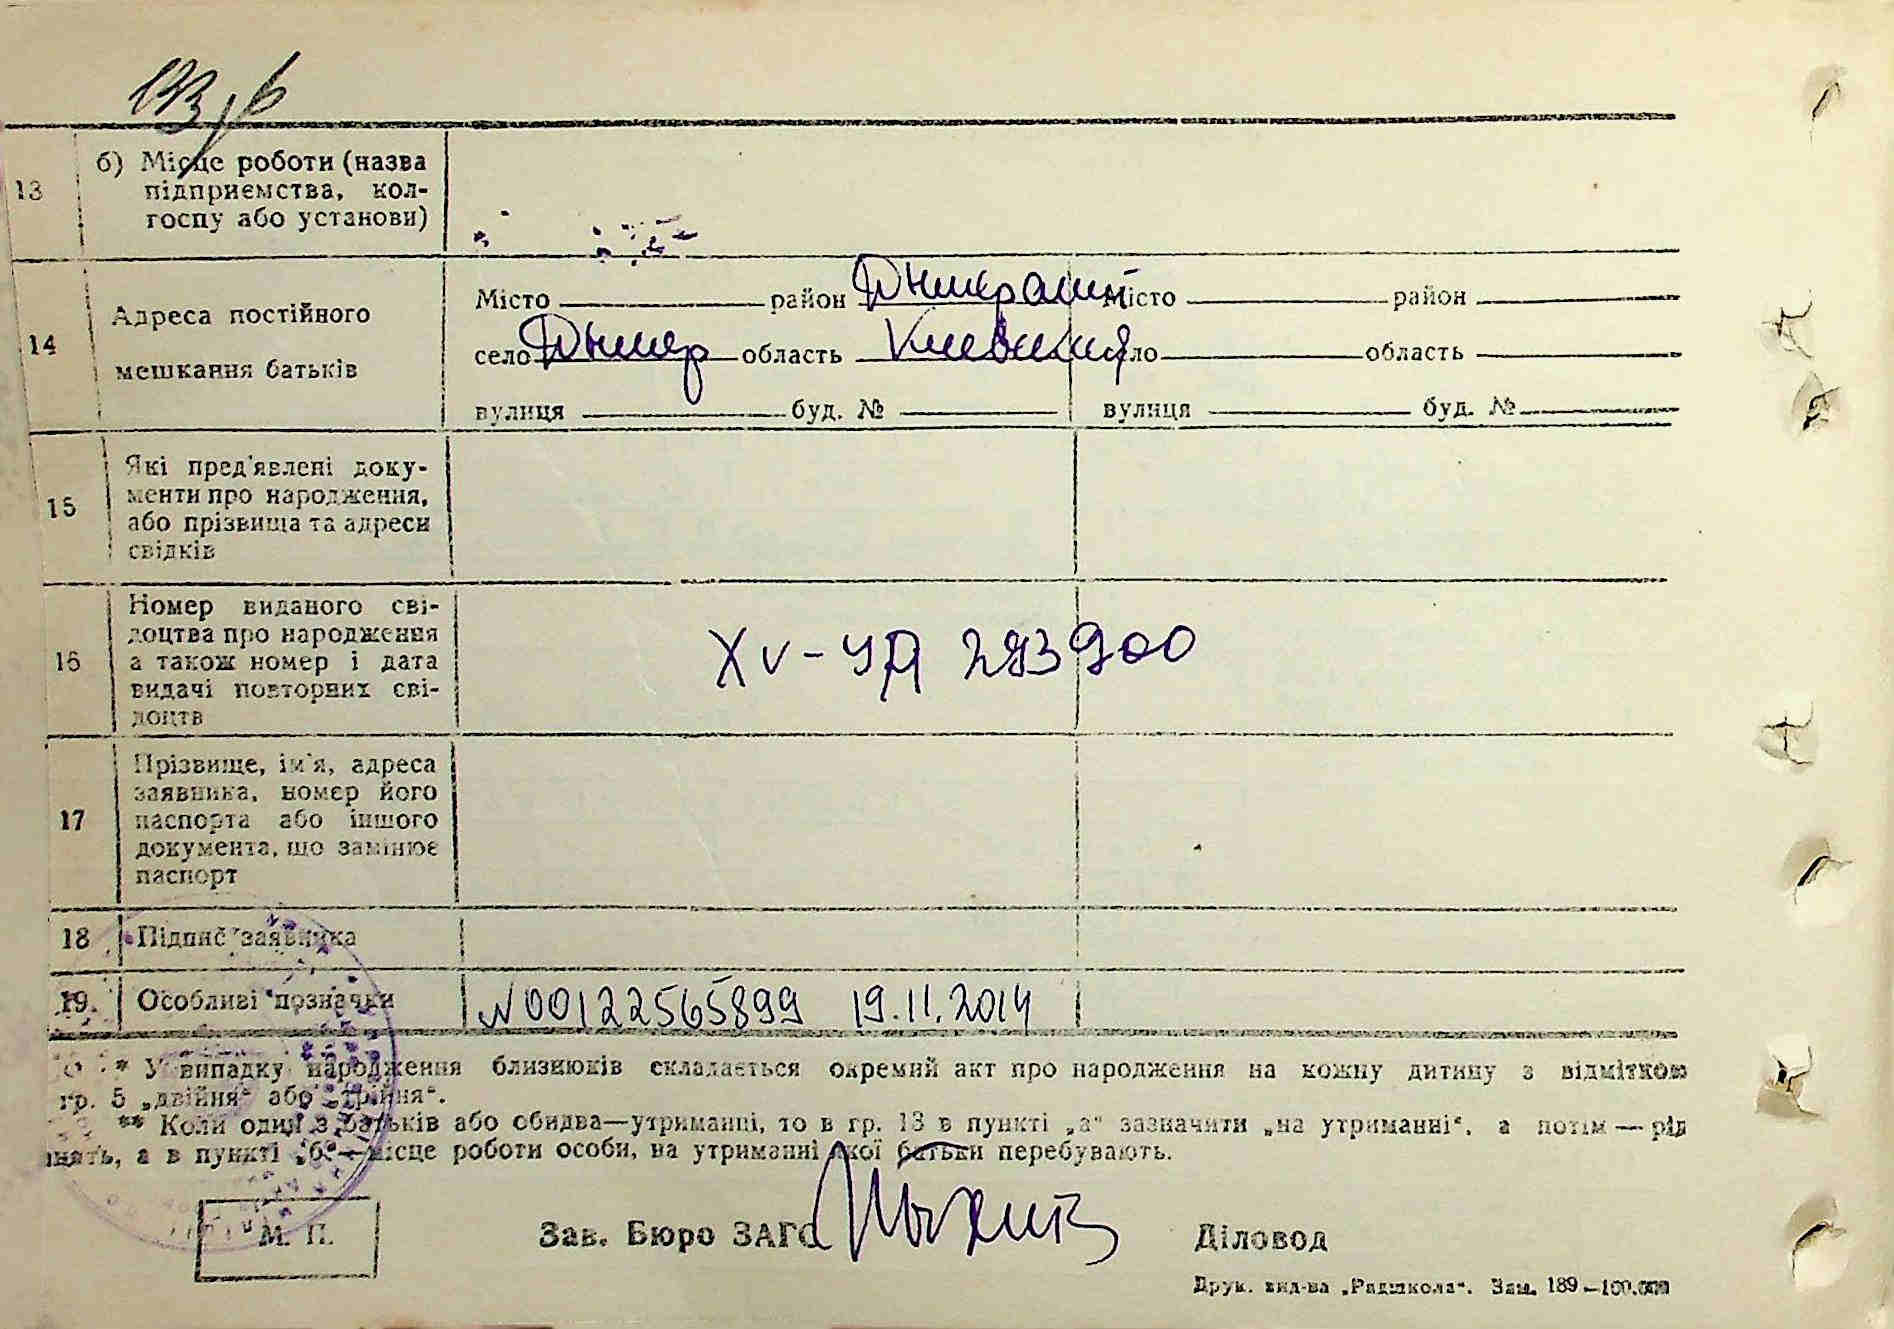 13 б) Місце роботи (назва
підприємства, кол-
госпу або установи)
14 Адреса постійного
мешкання батьків
Місто район Дымерский Місто район
село Дымер область Киевская село область
вулиця буд. № вулиця буд. №
15 Які пред'явлені доку-
менти про народження,
або прізвища та адреси
свідків
16 Номер виданого сві-
доцтва про народження
а також номер і дата
видачі повторних сві-
доцтв
XV-УЯ 293900
17 Прізвище, ім'я, адреса
заявника, номер його
паспорта або іншого
документа, що замінює
паспорт
18 Підпис заявника
19. Особливі позначки N00122565899 19.11.2014
* У випадку народження близнюків складається окремий акт про народження на кожну дитину з відміткою
гр. 5 „двійня“ або „трійня“.
** Коли один з батьків або обидва—утриманці, то в гр. 13 в пункті „а“ зазначити „на утриманні“, а потім — рід
занять, а в пункті „б“—місце роботи особи, на утриманні якої батьки перебувають.
М. П.
Зав. Бюро ЗАГС
Діловод
Друк. вид-ва „Радшкола“. Зам. 189—100.000